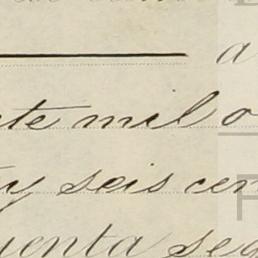 a
te mil o
y seis cen
uenta seg